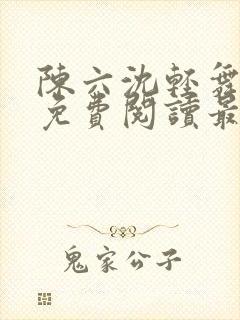 陳六沈輕舞
免費閱讀最
鬼家公子